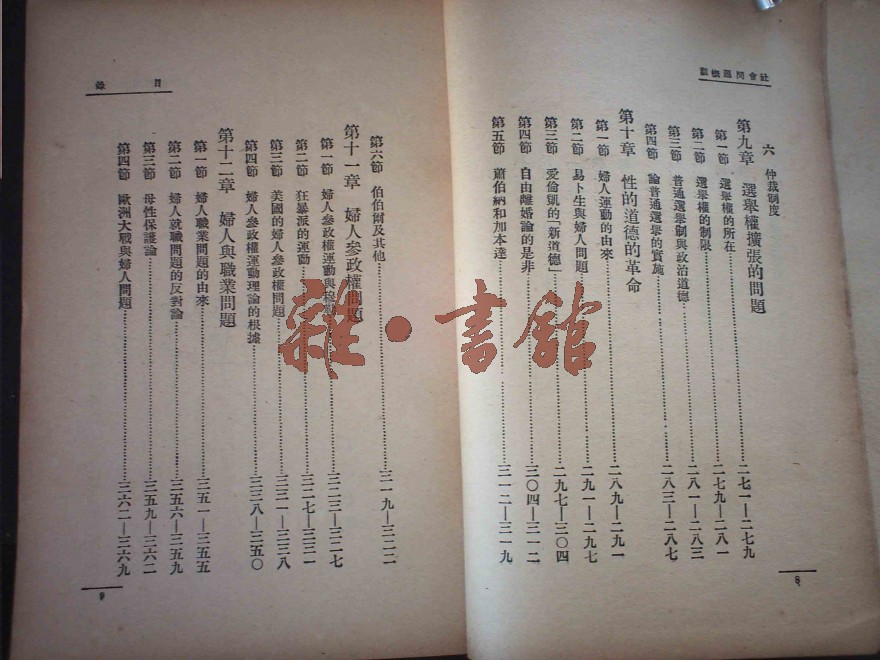 社會問題概觀
六 仲裁制度
第九章 選舉權擴張的問題
第一節 選舉權的所在……二七一—二七九
第二節 選舉權的制限……二七九—二八一
第三節 普通選舉制與政治道德……二八一—二八三
第四節 論普通選舉的實施……二八三—二八七
第十章 性的道德的革命
第一節 婦人運動的由來……二八九—二九一
第二節 易卜生與婦人問題……二九一—二九七
第三節 愛倫凱的「新道德」……二九七—三〇四
第四節 自由離婚論的是非……三〇四—三一二
第五節 蕭伯納和加本達……三一二—三一九
8
目錄
第六節 伯伯爾及其他……三一九—三二二
第十一章 婦人參政權問題
第一節 婦人參政權運動與……三二三—三二七
第二節 狂暴派的運動……三二七—三三一
第三節 美國的婦人參政權問題……三三一—三三八
第四節 婦人參政權運動理論的根據……三三八—三五〇
第十二章 婦人與職業問題
第一節 婦人職業問題的由來……三五一—三五五
第二節 婦人就職問題的反對論……三五六—三五九
第三節 母性保護論……三五九—三六二
第四節 歐洲大戰與婦人問題……三六二—三六九
9
雜·書館